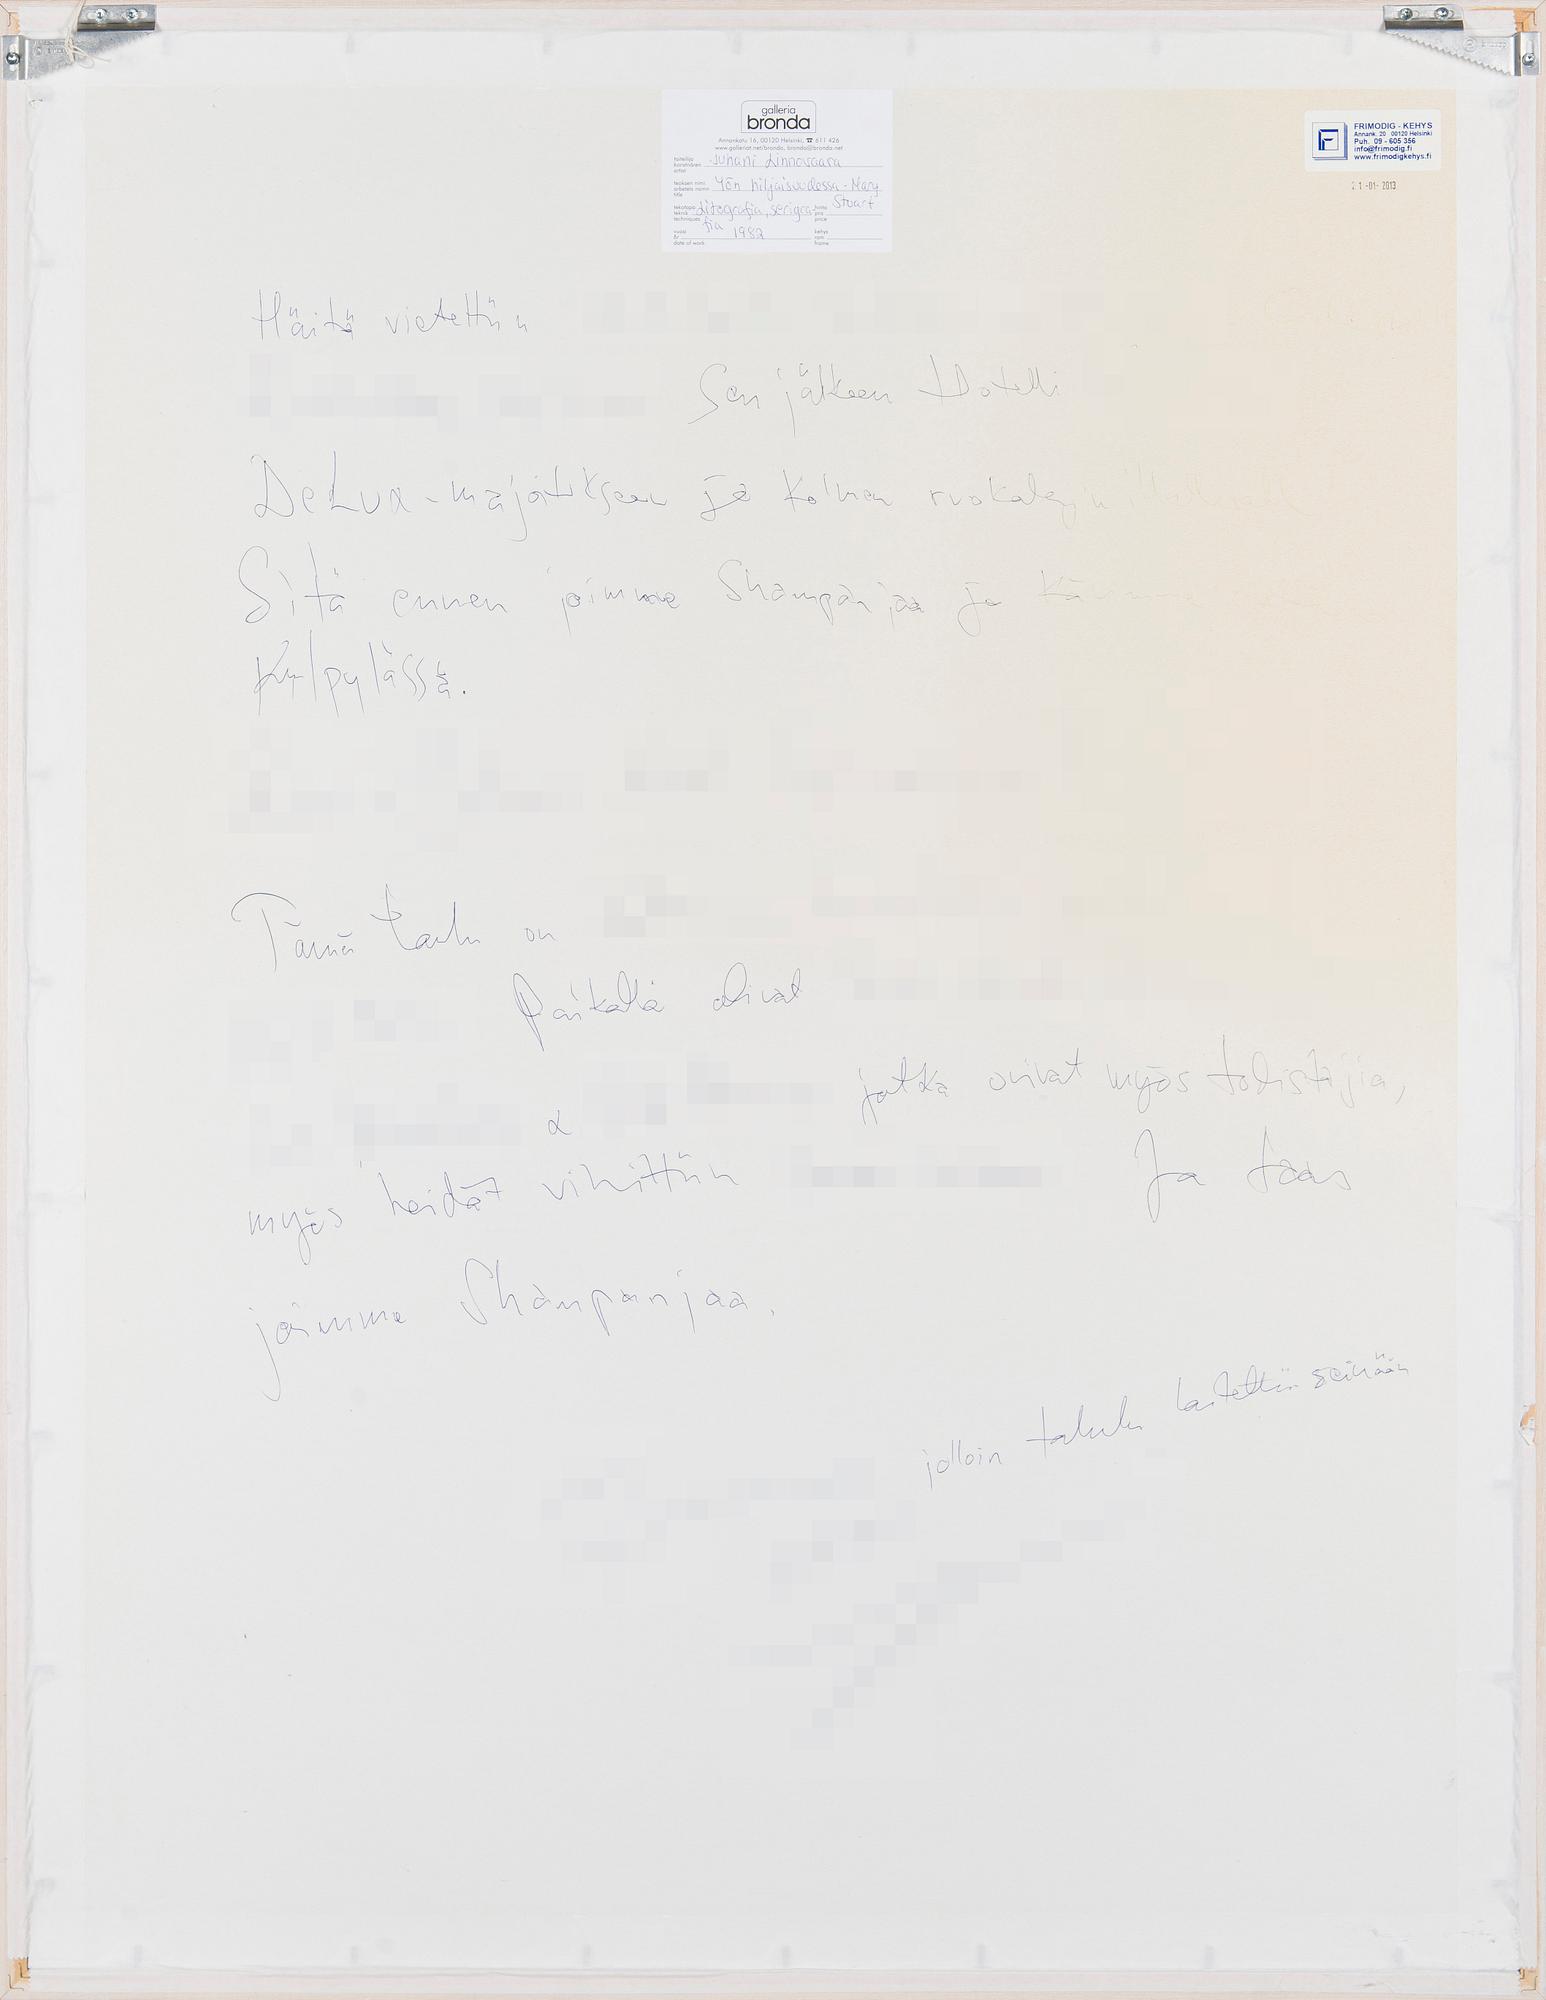 galleria
bronda
Annankatu 16, 00120 Helsinki, ☎ 611 426
www.galleriat.net/bronda, bronda@bronda.net
taiteilija
konstnären
artist
Juhani Linnovaara
teoksen nimi
arbetets namn
title
Yön hiljaisuudessa - Mary
Stuart
tekotapa
teknik
techniques
Litografia, serigra-
fia
hinta
pris
price
vuosi
år
date of work
1982
kehys
ram
frame
FRIMODIG - KEHYS
Annank. 20 00120 Helsinki
Puh. 09 - 605 356
info@frimodig.fi
www.frimodigkehys.fi
21-01-2013
Häitä vietettiin
Sen jälkeen Hotelli
DeLux-majoitukseen ja kolmen ruokalajin
Sitä ennen joimme Shampanjaa ja
Kylpylässä.
Tämä taulu on
Paikalla olivat
jotka olivat myös todistajia,
&
myös heidät vihittiin
Ja taas
joimme Shampanjaa.
jolloin taulu laitettiin seinään